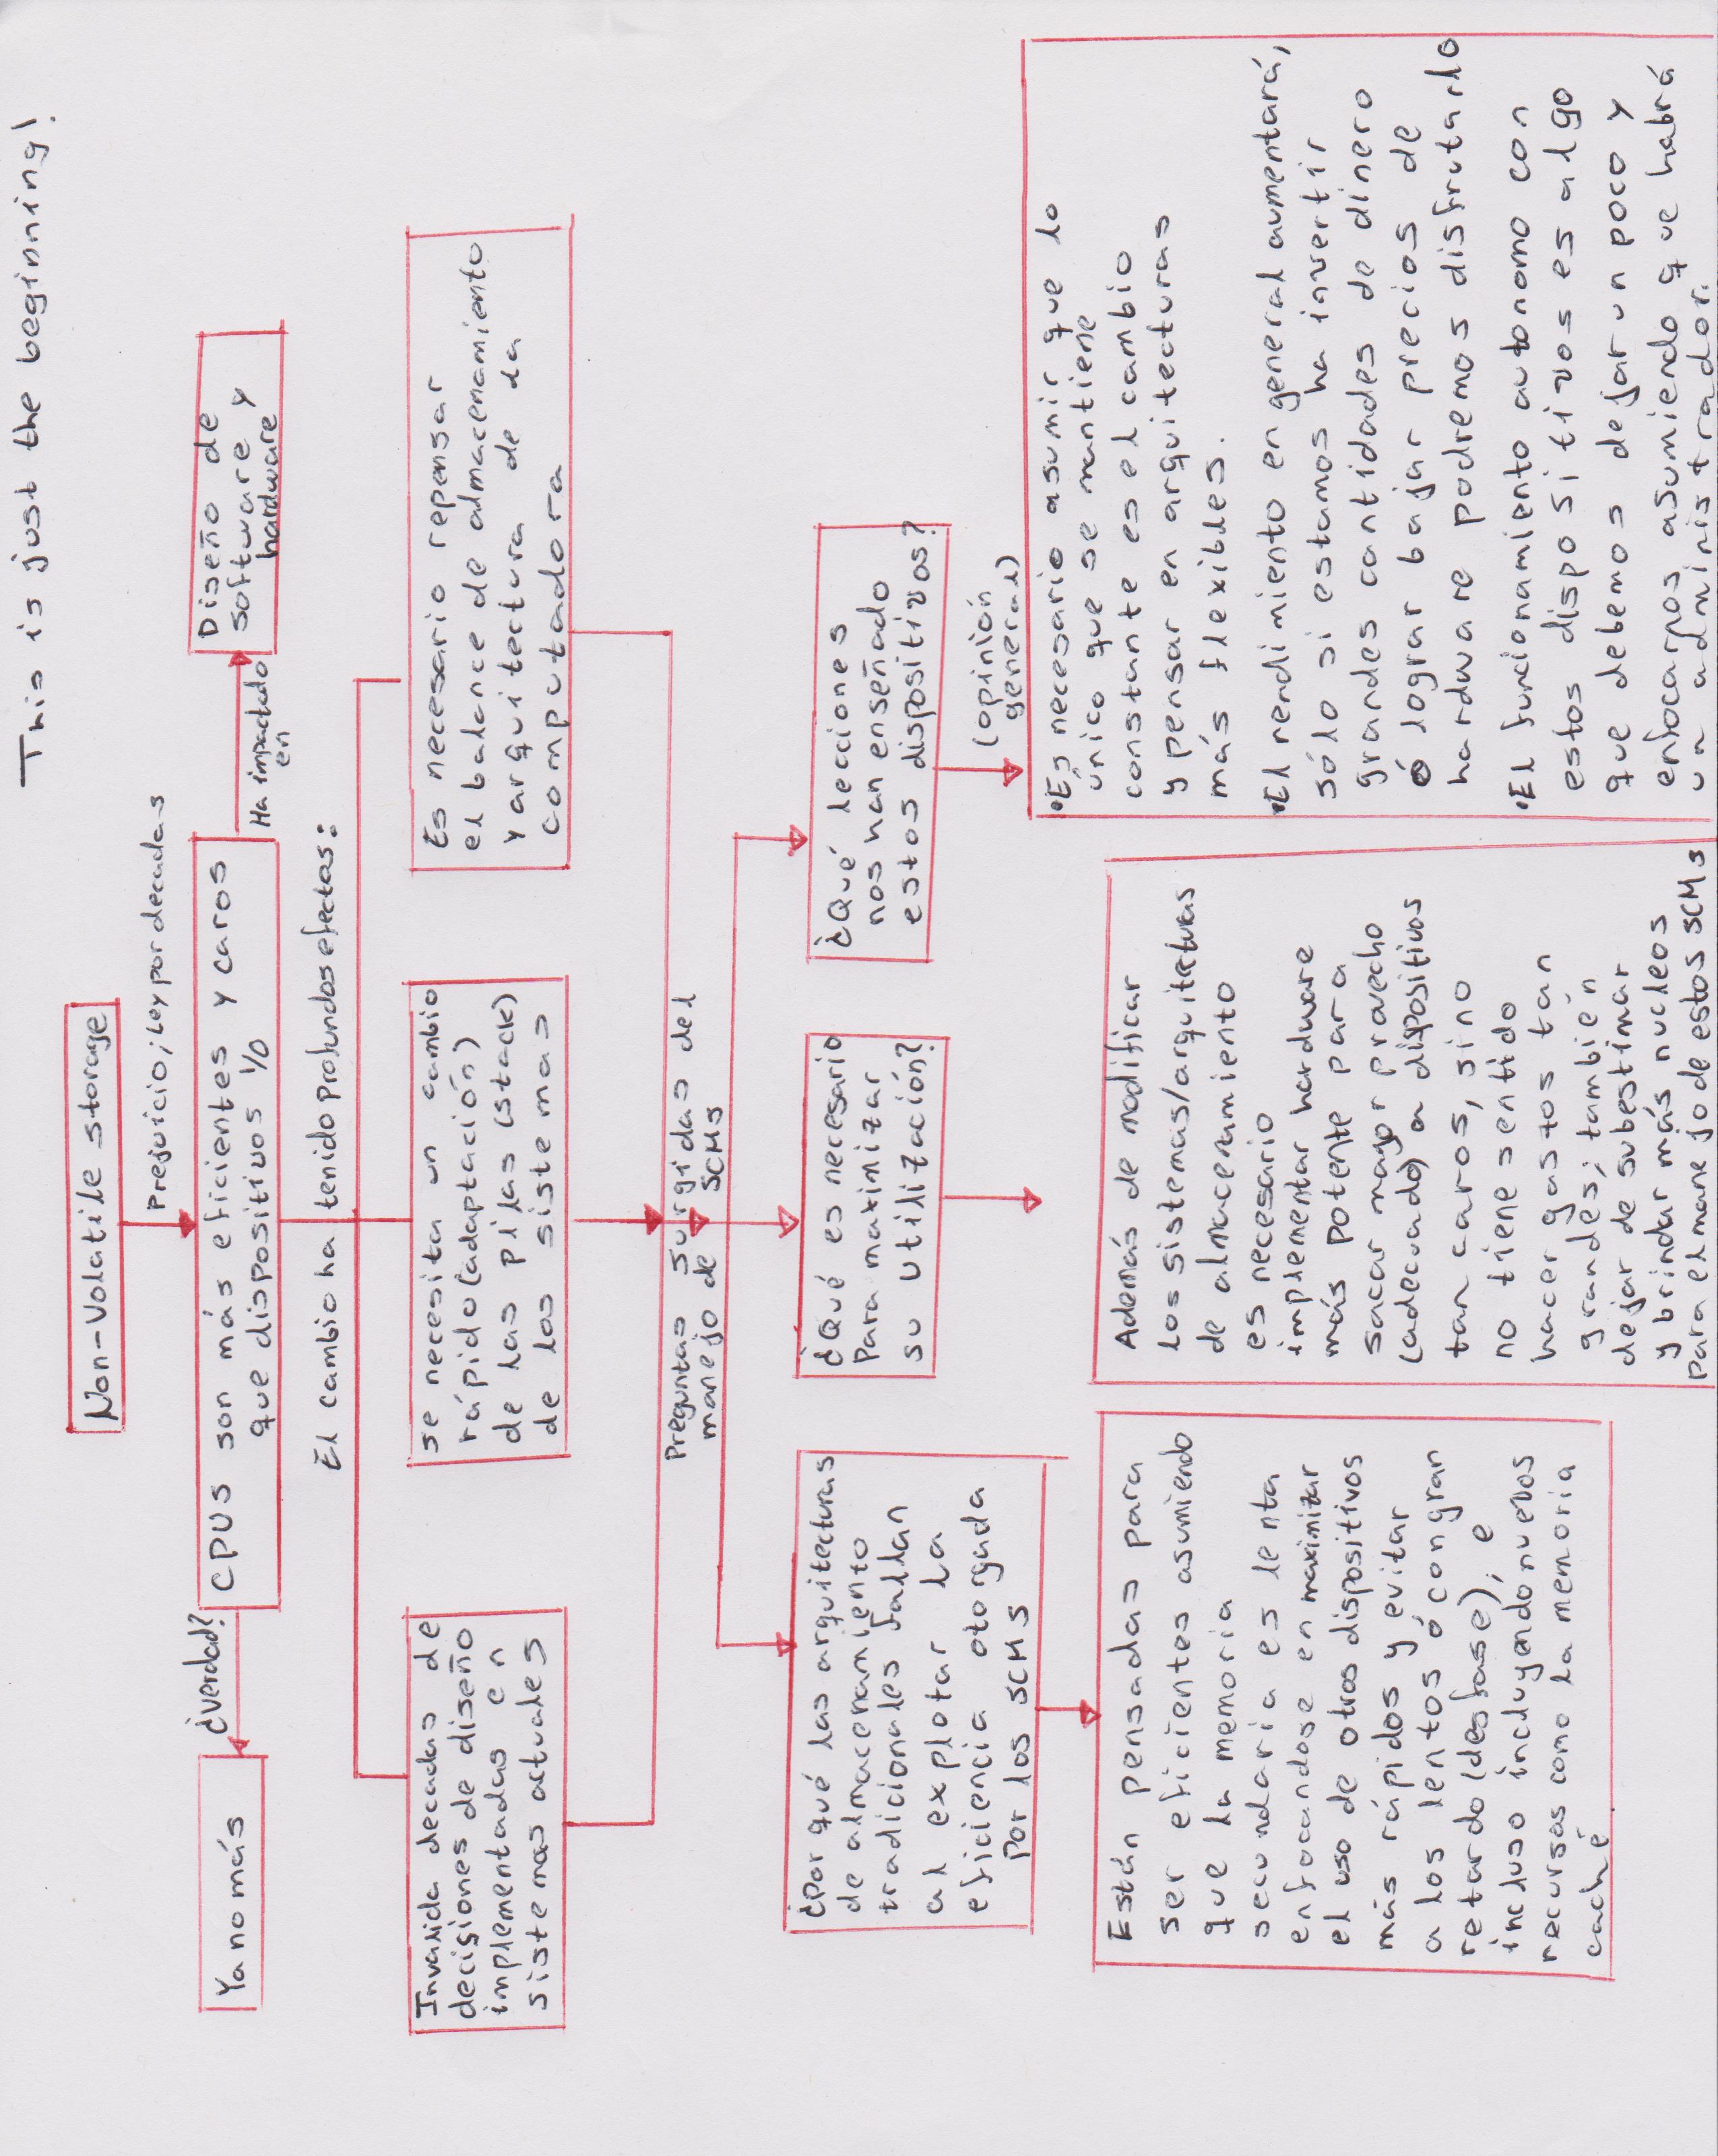 This is just the beginning!
Non-Volatile storage
Prejuicio; Ley por decadas
CPUS son más eficientes y caros
que dispositivos I/O
¿verdad?
Ya no más
Ha impactado
en
Diseño de
software y
hardware
El cambio ha tenido profundos efectos:
Invalida decadas de
decisiones de diseño
implementadas en
sistemas actuales
se necesita un cambio
rápido (adaptación)
de las pilas (stack)
de los sistemas
Es necesario repensar
el balance de almacenamiento
y arquitectura de la
computadora
Preguntas surgidas del
manejo de SCMs
¿Por qué las arquitecturas
de almacenamiento
tradicionales fallan
al explotar la
eficiencia otorgada
Por los SCMs
¿Qué es necesario
Para maximizar
su utilización?
¿Qué lecciones
nos han enseñado
estos dispositivos?
(opinión
general)
Están pensadas para
ser eficientes asumiendo
que la memoria
secundaria es lenta
enfocandose en maximizar
el uso de otros dispositivos
más rápidos y evitar
a los lentos ó con gran
retardo (desfase); e
incluso incluyendo nuevos
recursos como la memoria
caché
Además de modificar
los sistemas/arquitecturas
de almacenamiento
es necesario
implementar hardware
más potente para
sacar mayor provecho
(adecuado) a dispositivos
tan caros, sino
no tiene sentido
hacer gastos tan
grandes; también
dejar de subestimar
y brindar más nucleos
para el manejo de estos SCMs
•Es necesario asumir que lo
único que se mantiene
constante es el cambio
y pensar en arquitecturas
más flexibles.
•El rendimiento en general aumentará,
sólo si estamos ha invertir
grandes cantidades de dinero
ó lograr bajar precios de
hardware podremos disfrutarlo
•El funcionamiento autonomo con
estos dispositivos es algo
que debemos dejar un poco y
enfocarnos asumiendo que habrá
un administrador.